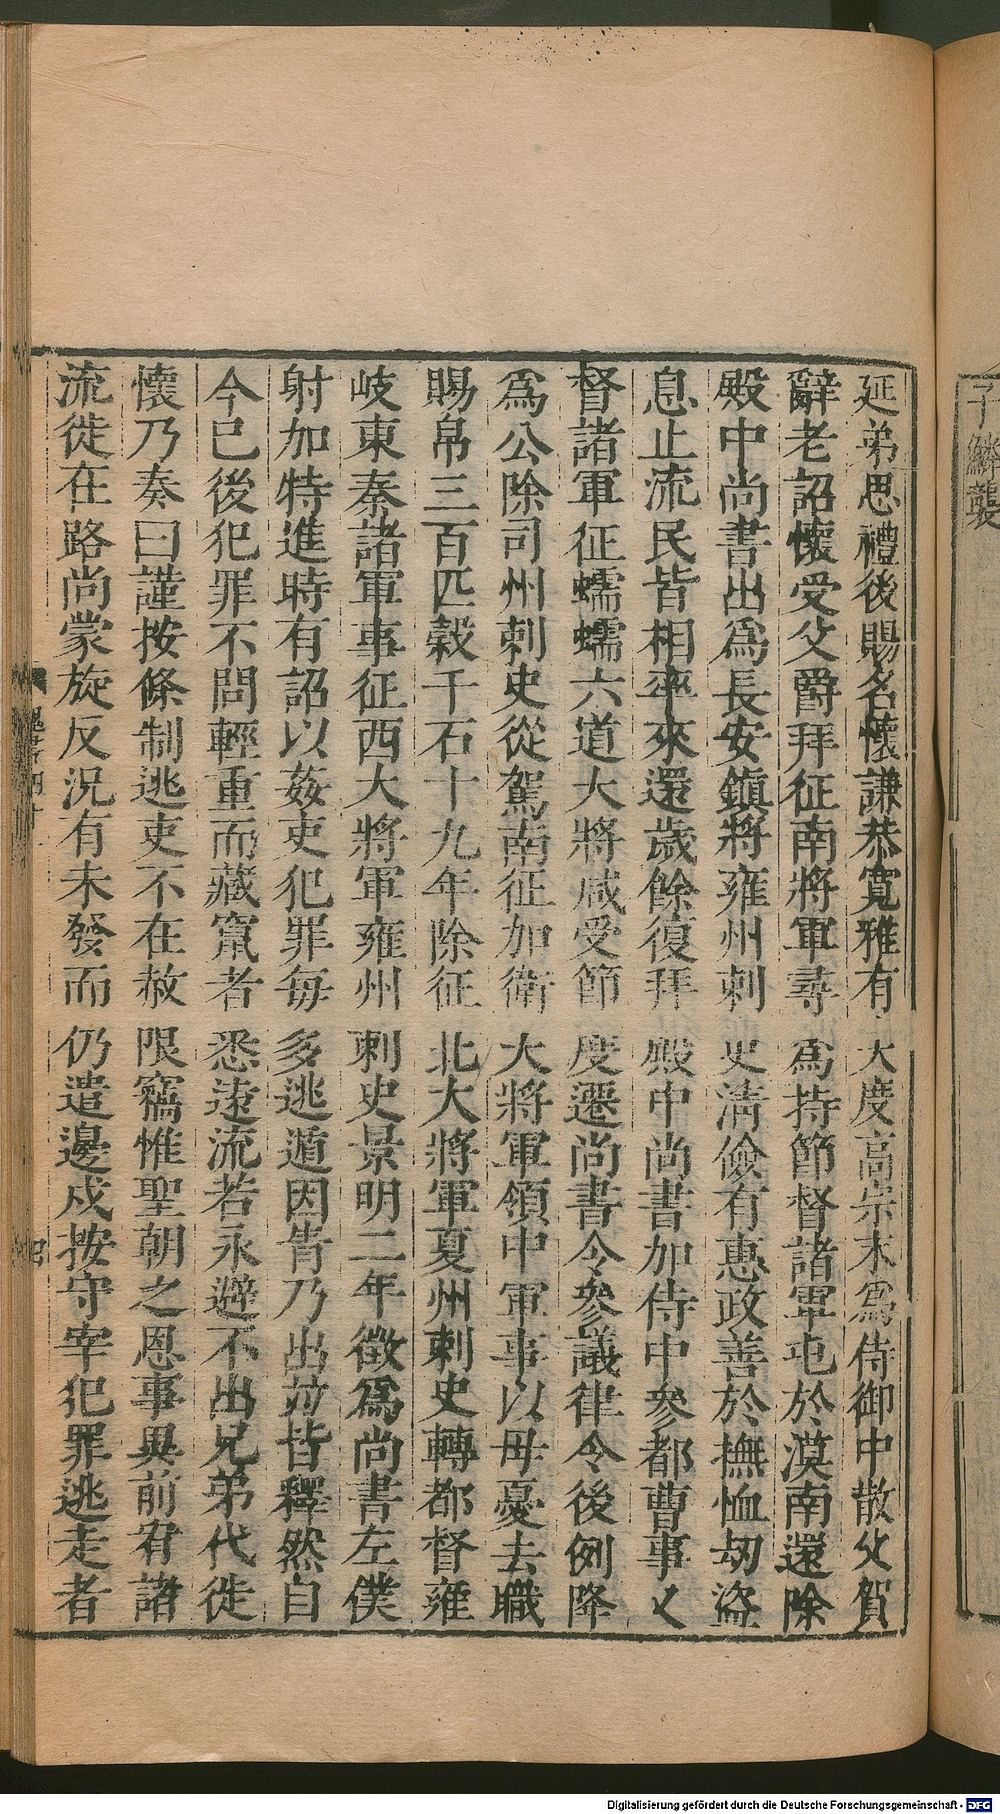 子麟襲
延弟思禮後賜名懷謙恭寬雅有大度高宗末爲侍御中散父賀
辭老詔懷受父爵拜征南將軍尋爲持節督諸軍屯於漠南還除
殿中尚書出爲長安鎮將雍州刺史淸儉有惠政善於撫恤刼盜
息止流民皆相率來還歲餘復拜殿中尚書加侍中參都曹事又
督諸軍征蠕蠕六道大將咸受節度遷尚書令參議律令後例降
爲公除司州刺史從駕南征加衛大將軍領中軍事以母憂去職
賜帛三百匹穀千石十九年除征北大將軍夏州刺史轉都督雍
岐東秦諸軍事征西大將軍雍州刺史景明二年徵爲尚書左僕
射加特進時有詔以姦吏犯罪每多逃遁因眚乃出並皆釋然自
今已後犯罪不問輕重而藏竄者悉遠流若永避不出兄弟代徙
懷乃奏曰謹按條制逃吏不在赦限竊惟聖朝之恩事異前宥諸
流徙在路尚蒙旋反況有未發而仍遣邊戍按守宰犯罪逃走者
Digitalisierung gefördert durch die Deutsche Forschungsgemeinschaft - DFG